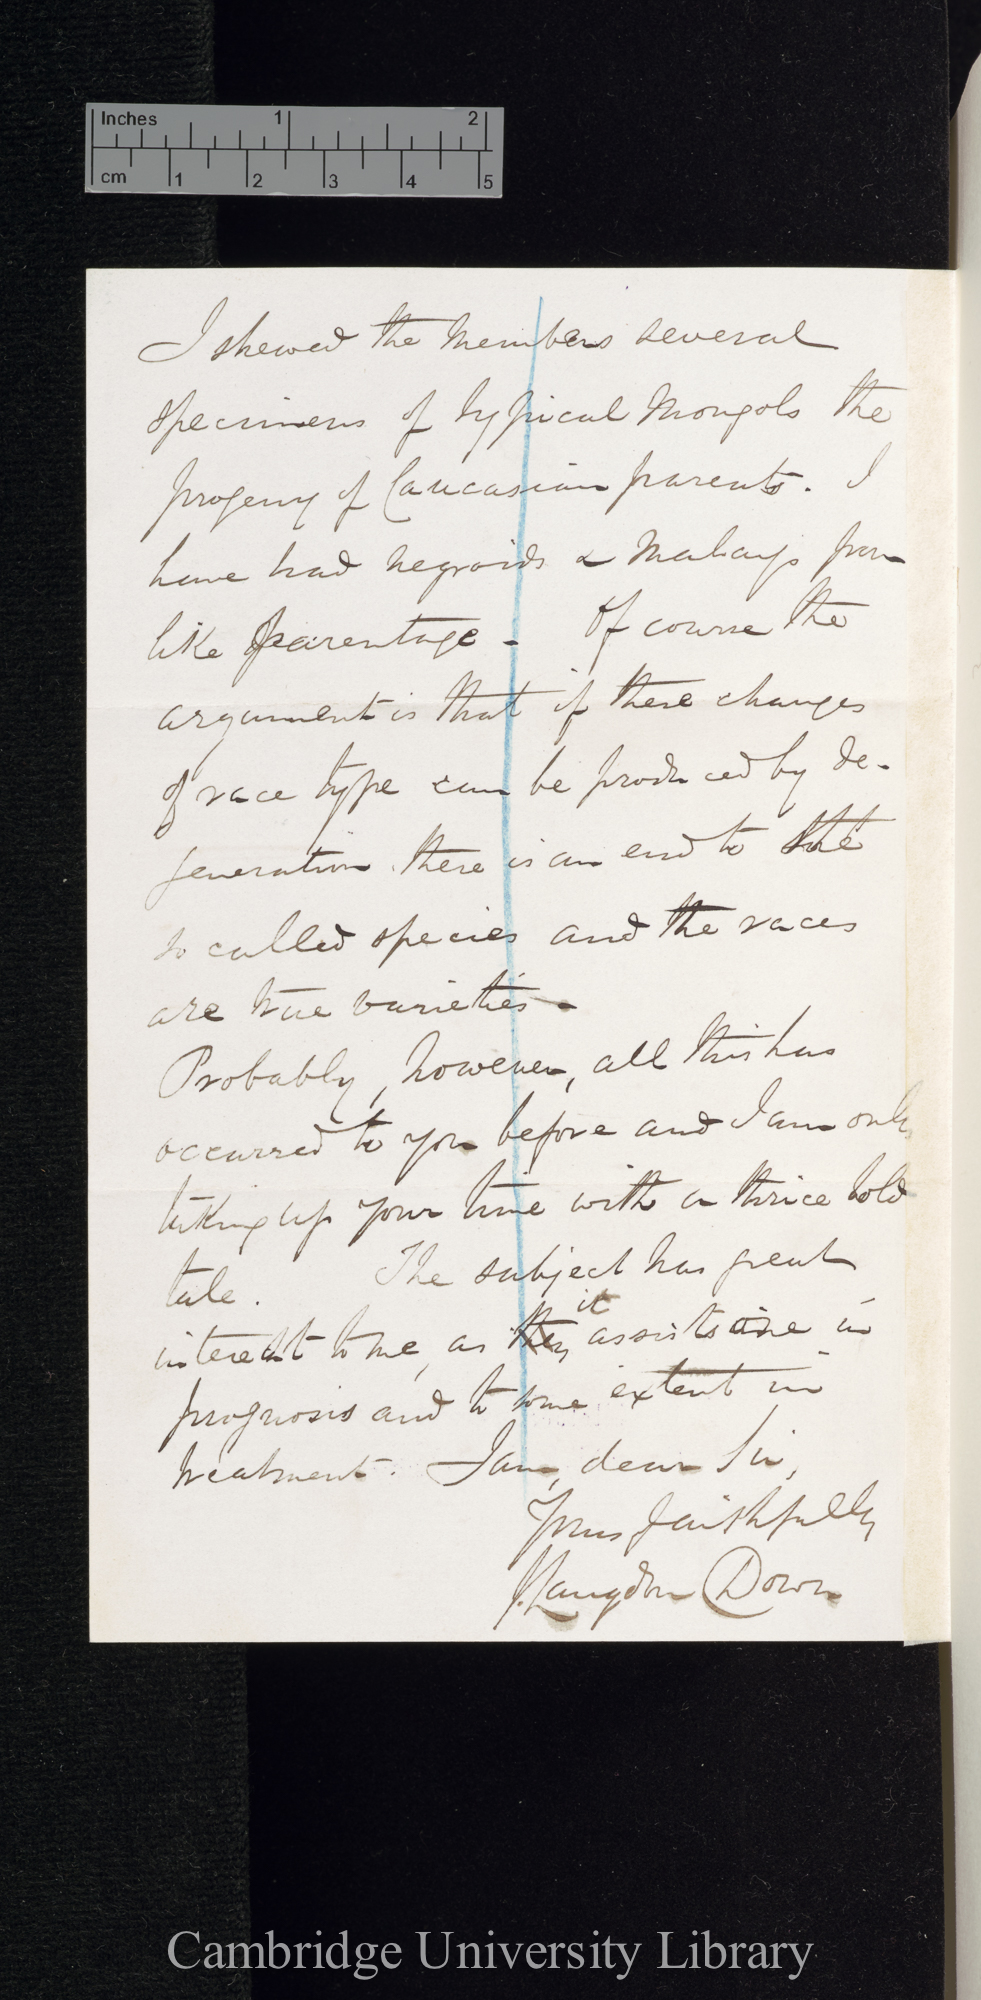 Inches 1 2
cm 1 2 3 4 5
I shewed the members several
specimens of typical Mongols the
progeny of Caucasian parents. I
have had negroids & Malays from
like parentage – Of course the
argument is that if these changes
of race type can be produced by de-
generation there is an end to the
so called species and the races
are true varieties –
Probably, however, all this has
occurred to you before and I am only
taking up your time with a thrice told
tale. The subject has great
it
interest to me, as they assists one in
prognosis and to some extent in
treatment. I am, dear Sir,
Yours faithfully
J. Langdon Down
Cambridge University Library